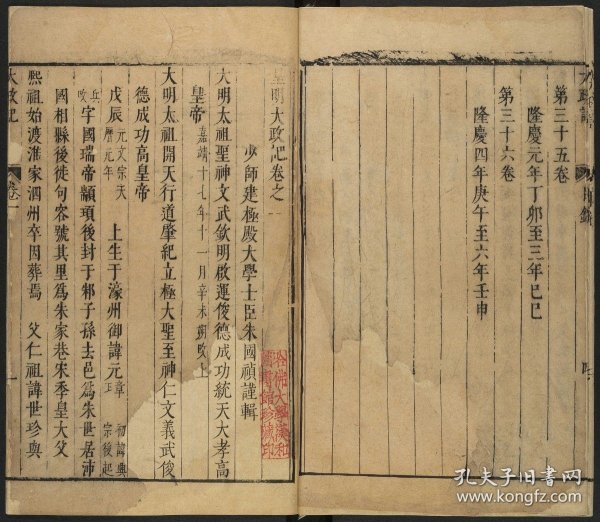 第三十五卷
隆慶元年丁卯至三年己巳
第三十六卷
隆慶四年庚午至六年壬申
皇明大政記卷之一
少師建極殿大學士臣朱國禎謹輯
大明太祖聖神文武欽明啟運俊德成功統天大孝高
皇帝 嘉靖十七年十一月辛未朔改上
大明太祖開天行道肇紀立極大聖至神仁文義武俊
德成功高皇帝
戊辰 元文宗天曆元年 上生于濠州御諱元璋 初諱興宗後起
兵改 字國瑞帝顓頊後封于邾子孫去邑為朱世居沛
國相縣後徙句容號其里為朱家巷宋季皇大父
熙祖始渡淮家泗州卒因葬焉 父仁祖諱世珍與
大政記
卷一
一
哈佛大學漢和圖書館珍藏印
孔夫子旧书网
www.kongfz.com